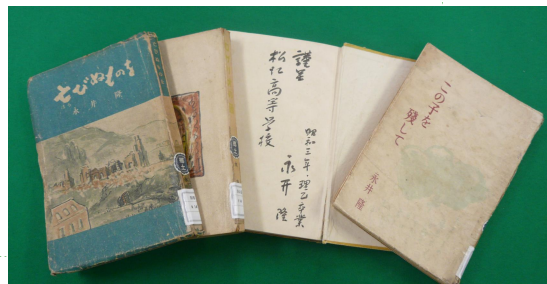 亡びぬものを
永井 隆
謹呈
松江高等学校
昭和三年・理乙卒業
永井 隆
この子を
残して
永井 隆